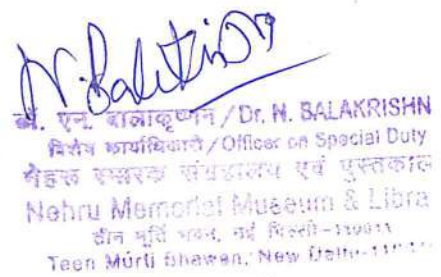 N. Balakrishn
डॉ. एन. बालाकृष्णन / Dr. N. BALAKRISHN
विशेष कार्याधिकारी / Officer on Special Duty
नेहरू स्मारक संग्रहालय एवं पुस्तकाल
Nehru Memorial Museum & Libra
तीन मूर्ति भवन, नई दिल्ली-110011
Teen Murti Bhawan, New Delhi-11